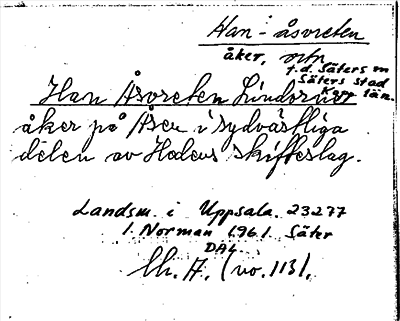 Han-åsvreten
åker, ortn
f.d. Säters m
Säters stad
Kopp. län.
Han Åsvreten Lindornas
åker på Åser i sydvästliga
delen av Hedens skifteslag.
Landsm. i Uppsala. 23277
I. Norman 1961. Säter
DAL.
(no. 113).